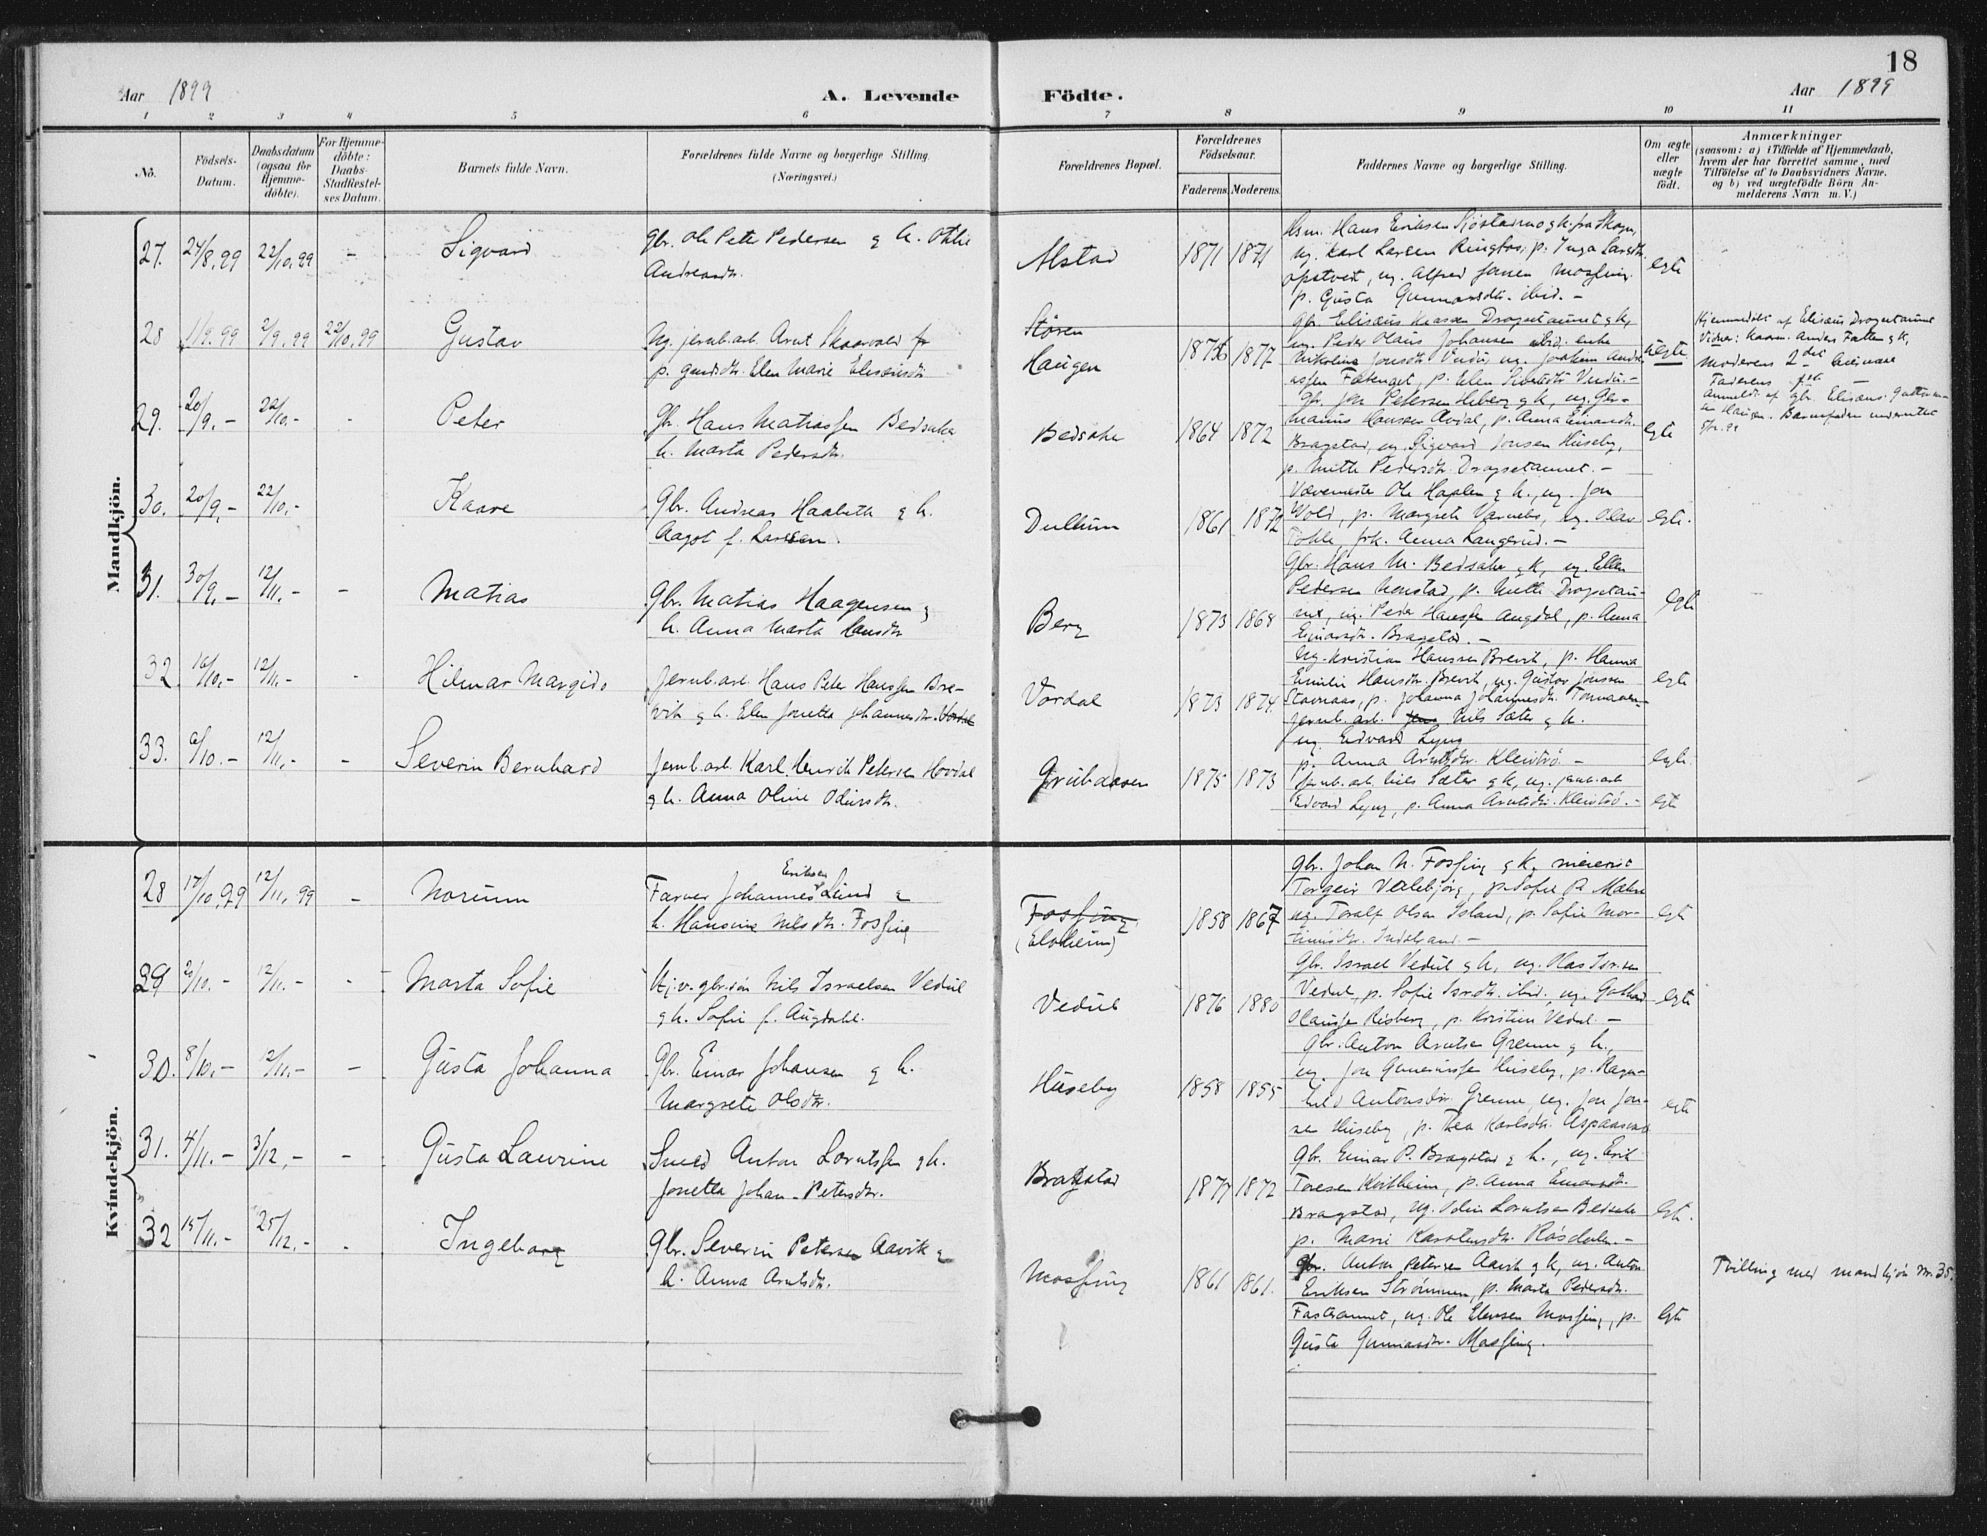 18
Aar 1899
A. Levende Födte.
Aar 1899
1 2 3 4 5 6 7 8 9 10 11
No.
Födsels-Datum.
Daabsdatum (ogsaa for Hjemmedöbte).
For Hjemmedöbte: Daabs-Stadfæstelses Datum.
Barnets fulde Navn.
Forældrenes fulde Navne og borgerlige Stilling.
(Næringsvei.)
Forældrenes Bopæl.
Forældrenes Födselsaar.
Faderens. Moderens.
Faddernes Navne og borgerlige Stilling.
Om ægte eller uægte födt.
Anmærkninger
(saasom: a) i Tilfælde af Hjemmedaab,
hvem der har forrettet samme, med
Tilföielse af to Daabsvidners Navne,
og b) ved uægtefödte Börn An-
melderens Navn m. V.)
Mandkjön.
27. 24/8.99 22/10.99 - Sigvard
Gbr. Ole Peter Pedersen g h. Othie
Andreasdtr.
Alstad 1871 1871
Hsm. Hans Eriksen
ug. Karl Larsen Ringfos, p. Inga
ug. Alfred Jansen Mosfing
p. Gusta Gunnarsdtr. ibid. -
egte
28 11/9.99 2/9.99 22/10.99 Gustav
Ug. jernb.arb. Arnt Skaarvold
p. Elen Marie Elisæusdtr
Stören
Haugen 1877
Gbr. Elisæus Dragsetaunet g k,
ug. Peder Olaus Johansen ibid. enke
Nikoline Jonsdtr
p. Elen
uegte
Hjemmedöbt af Elisæus Dragsetaunet
Vidner: Anders Fatten g k,
Moderens 2det
Faderens
Anmeldt af gbr. Elisæus
Haugen. Barnefaderen underrettet
29. 20/9.- 22/10.- - Peter
Gbr. Hans Matiassen Bedsake
h. Marta Pedersdtr.
Bedsake 1864 1872
Gbr. Jon Petersen Hiberg g k, ug. Gbr-
Hansen Avdal, p. Anna Einarsdtr.
Bragstad, ug. Sigvard Jonsen Huseby,
p. Mette Pedersdtr. Dragsetaunet. -
egte
30. 20/9.- 22/10.- Kaare
Gbr. Andreas Haabeth g h.
Aagot f. Larsen.
Dulhum 1861 1872
Vævemester Ole Haplen g h., ug. Jon
Wold, p. Margrete ug. Olav
frk. Anna Langerud. -
egte.
31. 30/9.- 12/11.- - Matias
Gbr. Matias Haagensen g
h. Anna Marta Hansdtr
Berg 1873 1868
Gbr. Hans M. Bedsake g k, ug. Ellen
Pedersen Monstad, p. Mette Dragsetau-
net, ug. Peder Hansen Augdal, p. Anna
Einarsdtr. Bragstad. -
Egte
32. 16/10.- 12/11.- - Hilmar Margido
Jernb.arb. Hans Peter Hanssen Bre-
vik g h. Elen Jonetta Johannesdtr. Vordal
Vordal 1873 1874.
Ug. Kristian Hanssen Brevik, p. Hanna
Emilie Hansdtr. Brevik, ug. Gustav Jonssen
Stavnaas, p. Johanna Johannesdtr.
Jernb.arb. Nils Sæter g h.
ug. Edvard Lyng
p. Anna Arntsdtr. Kleivbrö. -
egte
33. 6/10.- 12/11.- - Severin Bernhard
Jernb.arb. Karl Henrik Petersen Hovdal
g h. Anna Oline Odinsdtr.
Grubaasen 1875 1873
egte.
Jernb.arb. Nils Sæter g k, ug. jernb.arb
Edvard Lyng, p. Anna Arntsdtr. Kleivbrö. -
egte
Kvindekjön.
28 17/10.99 12/11.99 - Norunn
Farver Johannes Eriksen Lund g
h. Hansine Nilsdtr. Fosfing
Fosfing
(Elvheim) 1858 1867
Gbr. Johan N. Fosfing g k, meierist
Torgeir Vallebjörg, p. Sofie P. Mæhre
ug. Toralf Olsen Island, p. Sofie Mor-
tinusdtr. Inderstrand. -
egte
29 20/10.- 12/11.- - Marta Sofie
Hj.v. gbr.sön Nils Israelsen Vedul
g h. Sofie f. Augdahl.
Vedul 1876 1880
Gbr. Israel Vedul g h, ug. Olas
Vedul, p. Sofie Isrdtr. ibid., ug. Gothard
Olaussen Risberg, p. Kristine Vedul. -
egte
30. 8/10.- 12/11.- - Gusta Johanna
Gbr. Einar Johansen g h.
Margrete Olsdtr.
Huseby 1858 1855
Gbr. Anton Arntsen Grenne g h.,
ug. Jon Gunneriussen Huseby, p. Ragn-
hild Antonsdtr. Grenne, ug. Jon Jon-
sen Huseby, p. Thea Karlsdtr. Aspaasen
egte
31. 4/11.- 3/12.- - Gusta Laurine
Smed Anton Lorntssen g h.
Jonetta Johan-Petersdtr.
Bragstad 1877 1872
Gbr. Einar P. Bragstad g h., ug. Erik
Toresen Kvitheim, p. Anna Einarsdtr.
Bragstad, ug. Odin Lorntsen Bedsake
p. Marie Karstensdtr. Rösdalen. -
Egte.
32 15/11.- 25/12.- - Ingeborg
Gbr. Severin Petersen Aavik g
h. Anna Arntsdtr.
Mosfing 1861 1861.
Gbr. Anton Petersen Aavik g k, ug. Anton
Eriksen Strömmen, p. Marta Pedersdtr.
Fastraunet, ug. Ole Elevsen Mosfing, p.
Gusta Gunnarsdtr. Mosfing.
egte
Tvilling med mandkjön Nr. 35.